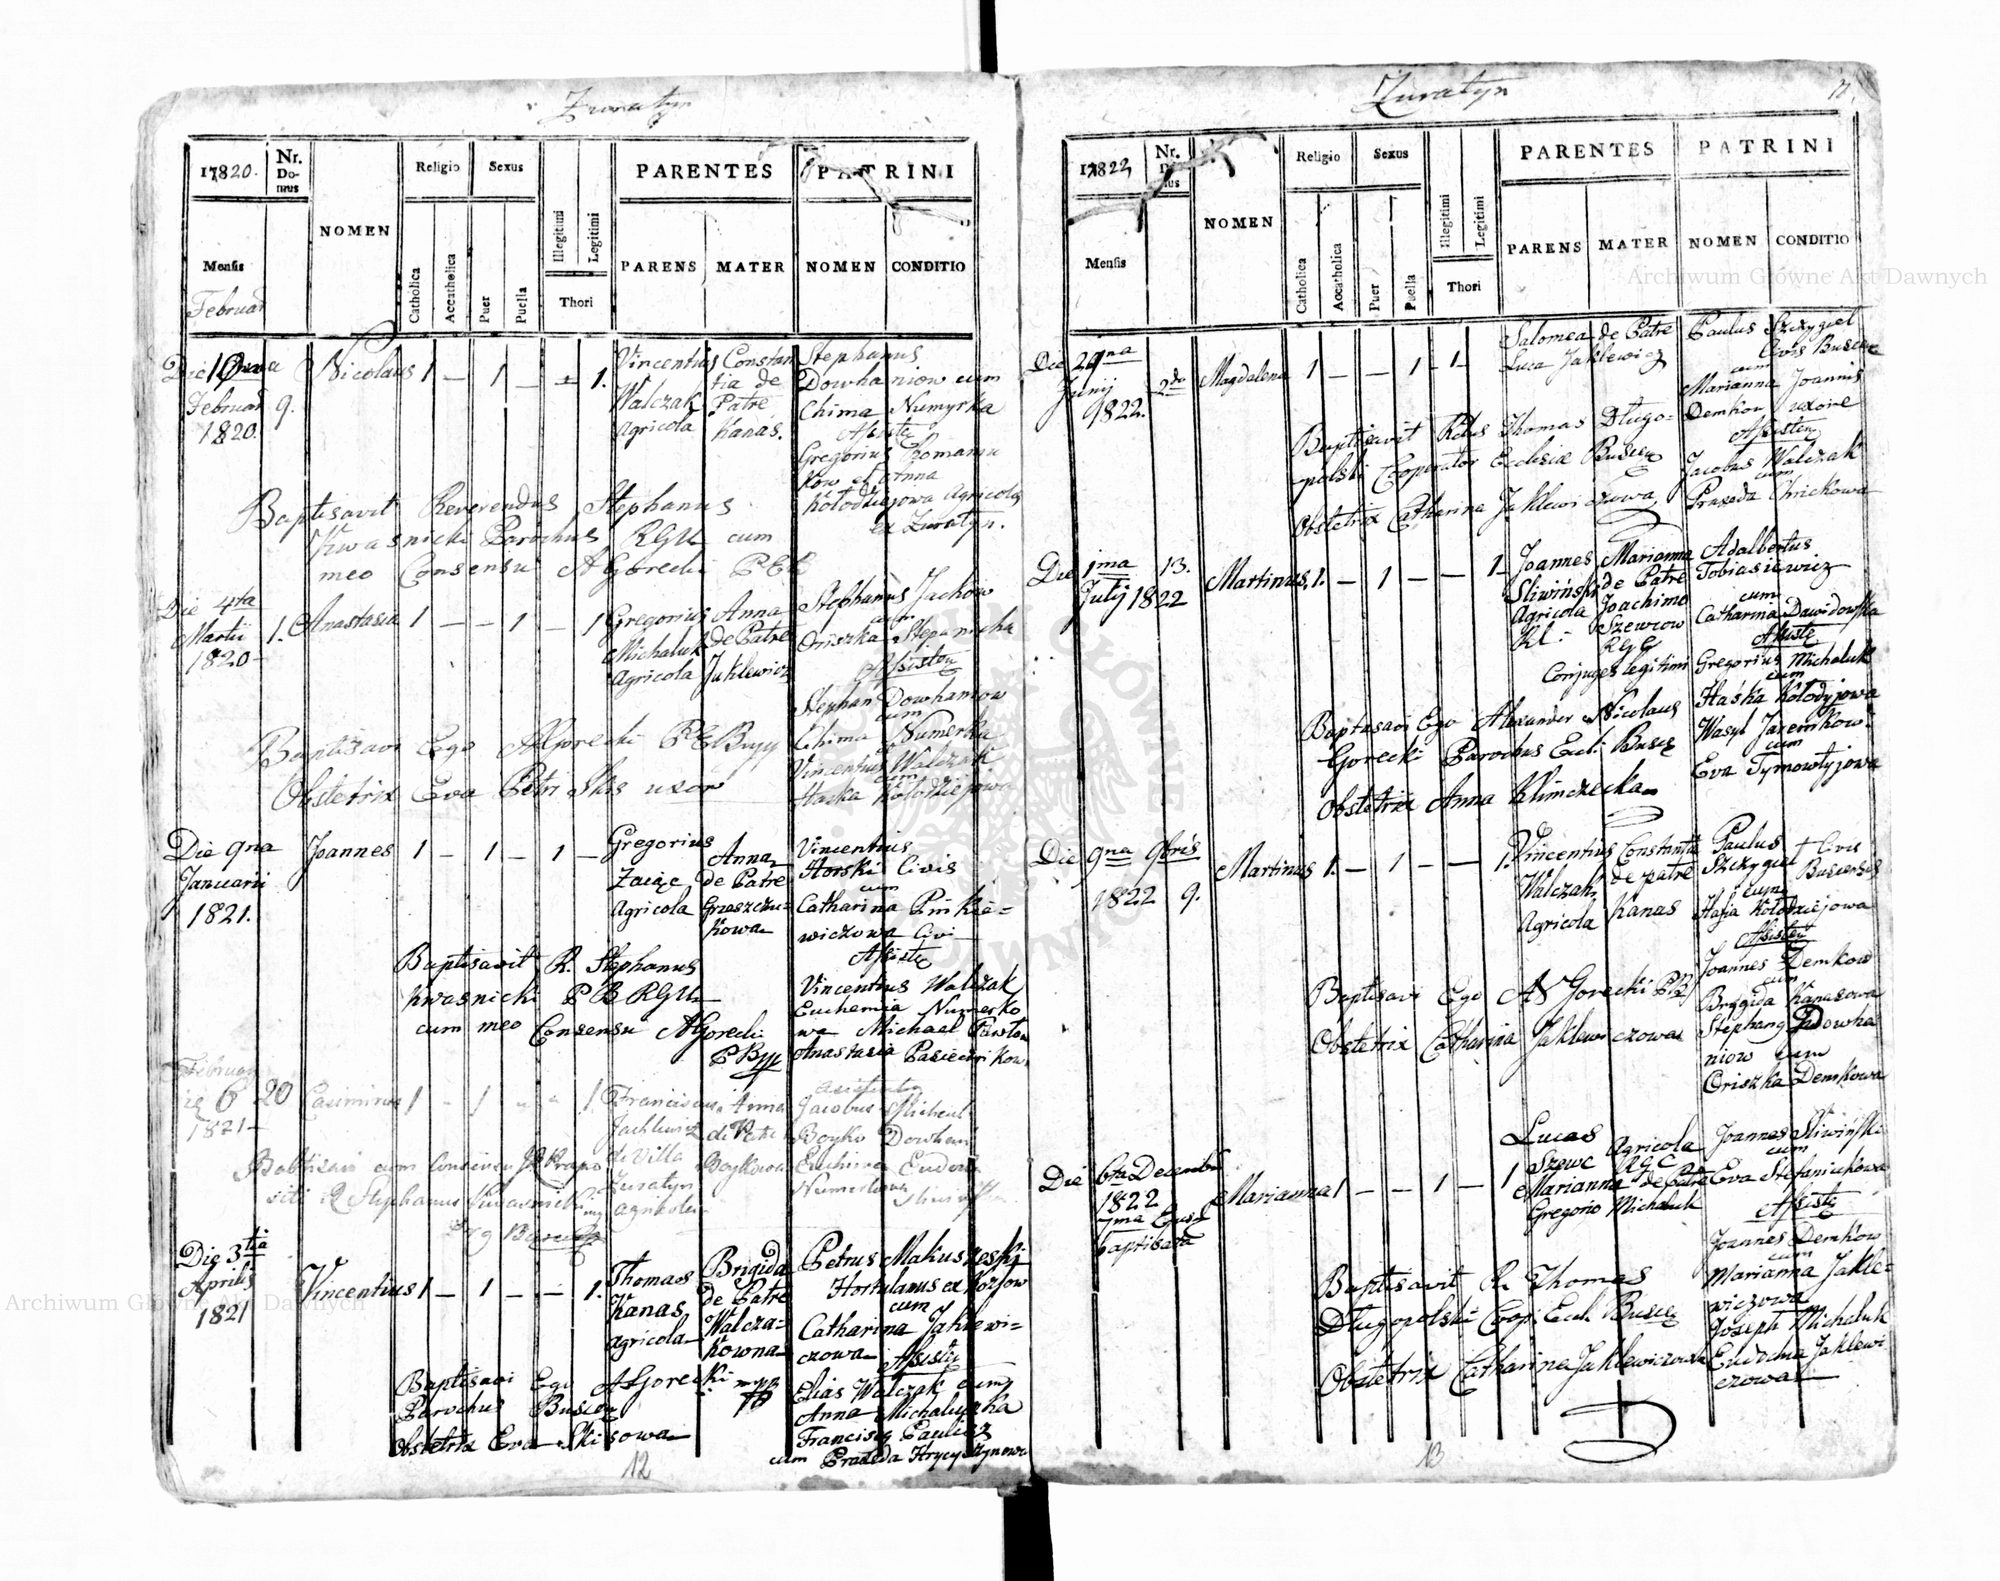 Zuratyn
17820.
Nr. Domus
NOMEN
Religio
Sexus
PARENTES
PATRINI
Mensis
Februar
Catholica
Accatholica
Puer
Puella
Illegitimi
Legitimi
Thori
PARENS
MATER
NOMEN
CONDITIO
Februar 9.
1820.
Nicolaus 1 — 1 — — 1.
Vincentius
Walczak
Agricola
Constan
tia de
Patre
Kanas.
Stephanus
Dowhaniow cum
Chima Numyrka
Assiste
Gregorius Romaniu
kow et Anna
Kołodziejowa Agricola
ex Zuratyn.
Baptisavit Reverendus Stephanus
Kwasnicki Parochus RGU cum
meo Consensu AGorecki
Die 4ta
Martii 1.
1820
Anastasia 1 — — 1 — 1
Gregorius
Michaluk
Agricola
Anna
de Patre
Jaklewicz
Stephanus Jachow
cum
Oriszka Stepanicha
Assisten
Stephan Dowhaniow
cum
Chima Numerka
Vincentius Walczak
cum
Haska Kołodziejowa
Baptisavi Ego AGorecki
Obstetrix Eva Petri Skis uxor
Die 9na
Januarii
1821.
Joannes 1 — 1 — 1 —
Gregorius
Zając
Agricola
Anna
de Patre
Grzeszczu-
kowa
Vincentius
Horski Civis
cum
Catharina Pinkie=
wiczowa Civi
Assiste
Vincentius Walczak
Euchemia Numerko
wa Michael
Anastasia
Baptisavit R. Stephanus
Kwasnicki P B RGU
cum meo Consensu AGorecki
Februar
6 20
1821
Casimirus 1 — 1
Franciscus
de Villa
Zuratyn
agricola
Anna
de Patre
Boykowa
Jacobus
Boyko
Stephanus Kwasnicki
Die 3tia
Aprilis
1821
Vincentius 1 — 1 — — 1.
Thomas
Kanas
Agricola
Brigida
de Patre
Walcza=
kowna
Petrus Makuszeski
Hortulanus ex Kozłow
cum
Catharina Jaklewi=
czowa Assiste
Elias Walczak cum
Anna Michaluczka
Franciscq Paulicz
cum Praxeda Hrycyszynowa
Baptisavi Ego AGorecki
Parochus Buscen
Obstetrix Eva Skisowa
12
Zuratyn
17822
Nr. Domus
NOMEN
Religio
Sexus
PARENTES
PATRINI
Mensis
Catholica
Accatholica
Puer
Puella
Illegitimi
Legitimi
Thori
PARENS
MATER
NOMEN
CONDITIO
Die 29na
Junij 2do
1822.
Magdalena 1 — — 1 1
Salomea de Patre
Luca Jaklewicz
Paulus Szczygiel
Civis Buscen
cum
Marianna Joannis
Demkow uxore
Assisten
Jacobus Walczak
cum
Praxeda Chrickowa
Baptisavit Rdus Thomas Długo-
polski Cooperator Eclesiæ Buscen
Obstetrix Catharina Jaklewiczowa
Die 1ma 13.
Julij 1822
Martinus 1. — 1 — — 1
Joannes
Sliwiński
Agricola
Rl.
Marianna
de Patre
Joachimo
Szewcow
RgC
Conjuges legitimi
Adalbertus
Tobiasiewicz
cum
Catharina Dawidowska
Assiste
Gregorius Michaluk
cum
Haśka Kołodyjowa
Wasyl Jaremkow
cum
Eva Tymowtyjowa
Baptisavi Ego Alexander Nicolaus
Gorecki Parochus Eccl. Busce
Obstetrix Anna Klimczecka
Die 9na 9bris
1822 9.
Martinus 1. — 1 — — 1.
Vincentius
Walczak
Agricola
Constantia
de patre
Kanas
Paulus
Szczygiel Civis
Buscensis
cum
Hasia Kołodziejowa
Assisten
Joannes Demkow
cum
Brygida Kanasowa
Stephang Dowha
niow cum
Oriszka Demkowa
Baptisavi Ego AN Gorecki PB
Obstetrix Catharina Jaklewiczowa
Die 6ta Decembris
1822
7ma Ejusd
baptisata
Marianna 1 — — 1 — 1
Lucas
Szewc Agricola
RGC
Marianna de Patre
Gregorio Michaluk
Joannes Sliwiński
cum
Eva Stefaniukowa
Assiste
Joannes Demkow
cum
Marianna Jakle=
wiczowa
Joseph Michaluk
Eudochia Jaklewi
czowa
Baptisavit R. Thomas
Długopolski Coop. Eccl. Busce
Obstetrix Catharina Jaklewiczowa
13
Archiwum Główne Akt Dawnych
Archiwum Główne Akt Dawnych